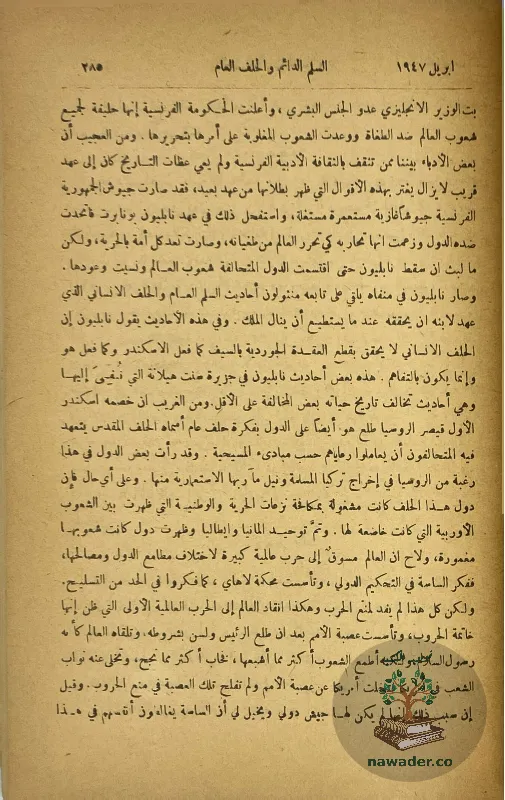 ابريل ١٩٤٧ السلم الدائم والحلف العام ٢٨٥
بت الوزير الانجليزي عدو الجنس البشري ، وأعلنت الحكومة الفرنسية إنها حليفة لجميع
شعوب العالم ضد الطغاة ووعدت الشعوب المغلوبة على أمرها بتحريرها . ومن العجيب أن
بعض الأدباء بيننا ممن تثقف بالثقافة الأدبية الفرنسية ولم يعي عظات التاريخ كان إلى عهد
قريب لا يزال يغتر بهذه الأقوال التي ظهر بطلانها من عهد بعيد، فقد صارت جيوش الجمهورية
الفرنسية جيوشاً غازية مستعمرة مستغلة، واستفحل ذلك في عهد نابليون بونابرت فاتحدت
ضده الدول وزعمت انها تحاربه كي تحرر العالم من طغيانه، وصارت تعد كل أمة بالحرية، ولكن
ما لبث ان سقط نابليون حتى اقتسمت الدول المتحالفة شعوب العالم ونسيت وعودها .
وصار نابليون في منفاه يأتي على تابعه منثولون أحاديث السلم العام والحلف الانساني الذي
عهد لابنه ان يحققه عند ما يستطيع أن ينال الملك . وفي هذه الأحاديث يقول نابليون إن
الحلف الانساني لا يحقق بقطع العقدة الجوردية بالسيف كما فعل الاسكندر وكما فعل هو
وإنما يكون بالتفاهم . هذه بعض أحاديث نابليون في جزيرة سنت هيلانة التي نُفيَ إليها
وهي أحاديث تخالف تاريخ حياته بعض المخالفة على الأقل. ومن الغريب ان خصمه اسكندر
الأول قيصر الروسيا طلع هو أيضاً على الدول بفكرة حلف عام أسماه الحلف المقدس يتعهد
فيه المتحالفون أن يعاملوا رعاياهم حسب مبادىء المسيحية . وقد رأت بعض الدول في هذا
رغبة من الروسيا في إخراج تركيا المسلمة ونيل مآربها الاستعمارية منها . وعلى أي حال فإن
دول هذا الحلف كانت مشغولة بمكافحة نزعات الحرية والوطنية التي ظهرت بين الشعوب
الأوربية التي كانت خاضعة لها . وتمَّ توحيد المانيا وإيطاليا وظهرت دول كانت شعوبها
مغمورة، ولاح ان العالم مسوقٌ إلى حرب عالمية كبيرة لاختلاف مطامع الدول ومصالحها،
ففكر الساسة في التحكيم الدولي ، وتأسست محكمة لاهاي ، كما فكروا في الحد من التسليح.
ولكن كل هذا لم يفد لمنع الحرب وهكذا انقاد العالم إلى الحرب العالمية الأولى التي ظن إنها
خاتمة الحروب، وتأسست عصبة الأمم بعد ان طلع الرئيس ولسن بشروطه. وتلقاه العالم كأنه
رسول السلام ولكنه أطمع الشعوب أكثر مما أشبعها ، فخاب أكثر مما نجح، وتخلى عنه نواب
الشعب في أمريكا عن عصبة الأمم ولم تفلح تلك العصبة في منع الحروب . وقيل
إن سبب ذلك انها لم يكن لها جيش دولي ويخيل لي أن الساسة يغالطون أنفسهم في هذا
نوادر المكتبة
nawader.co